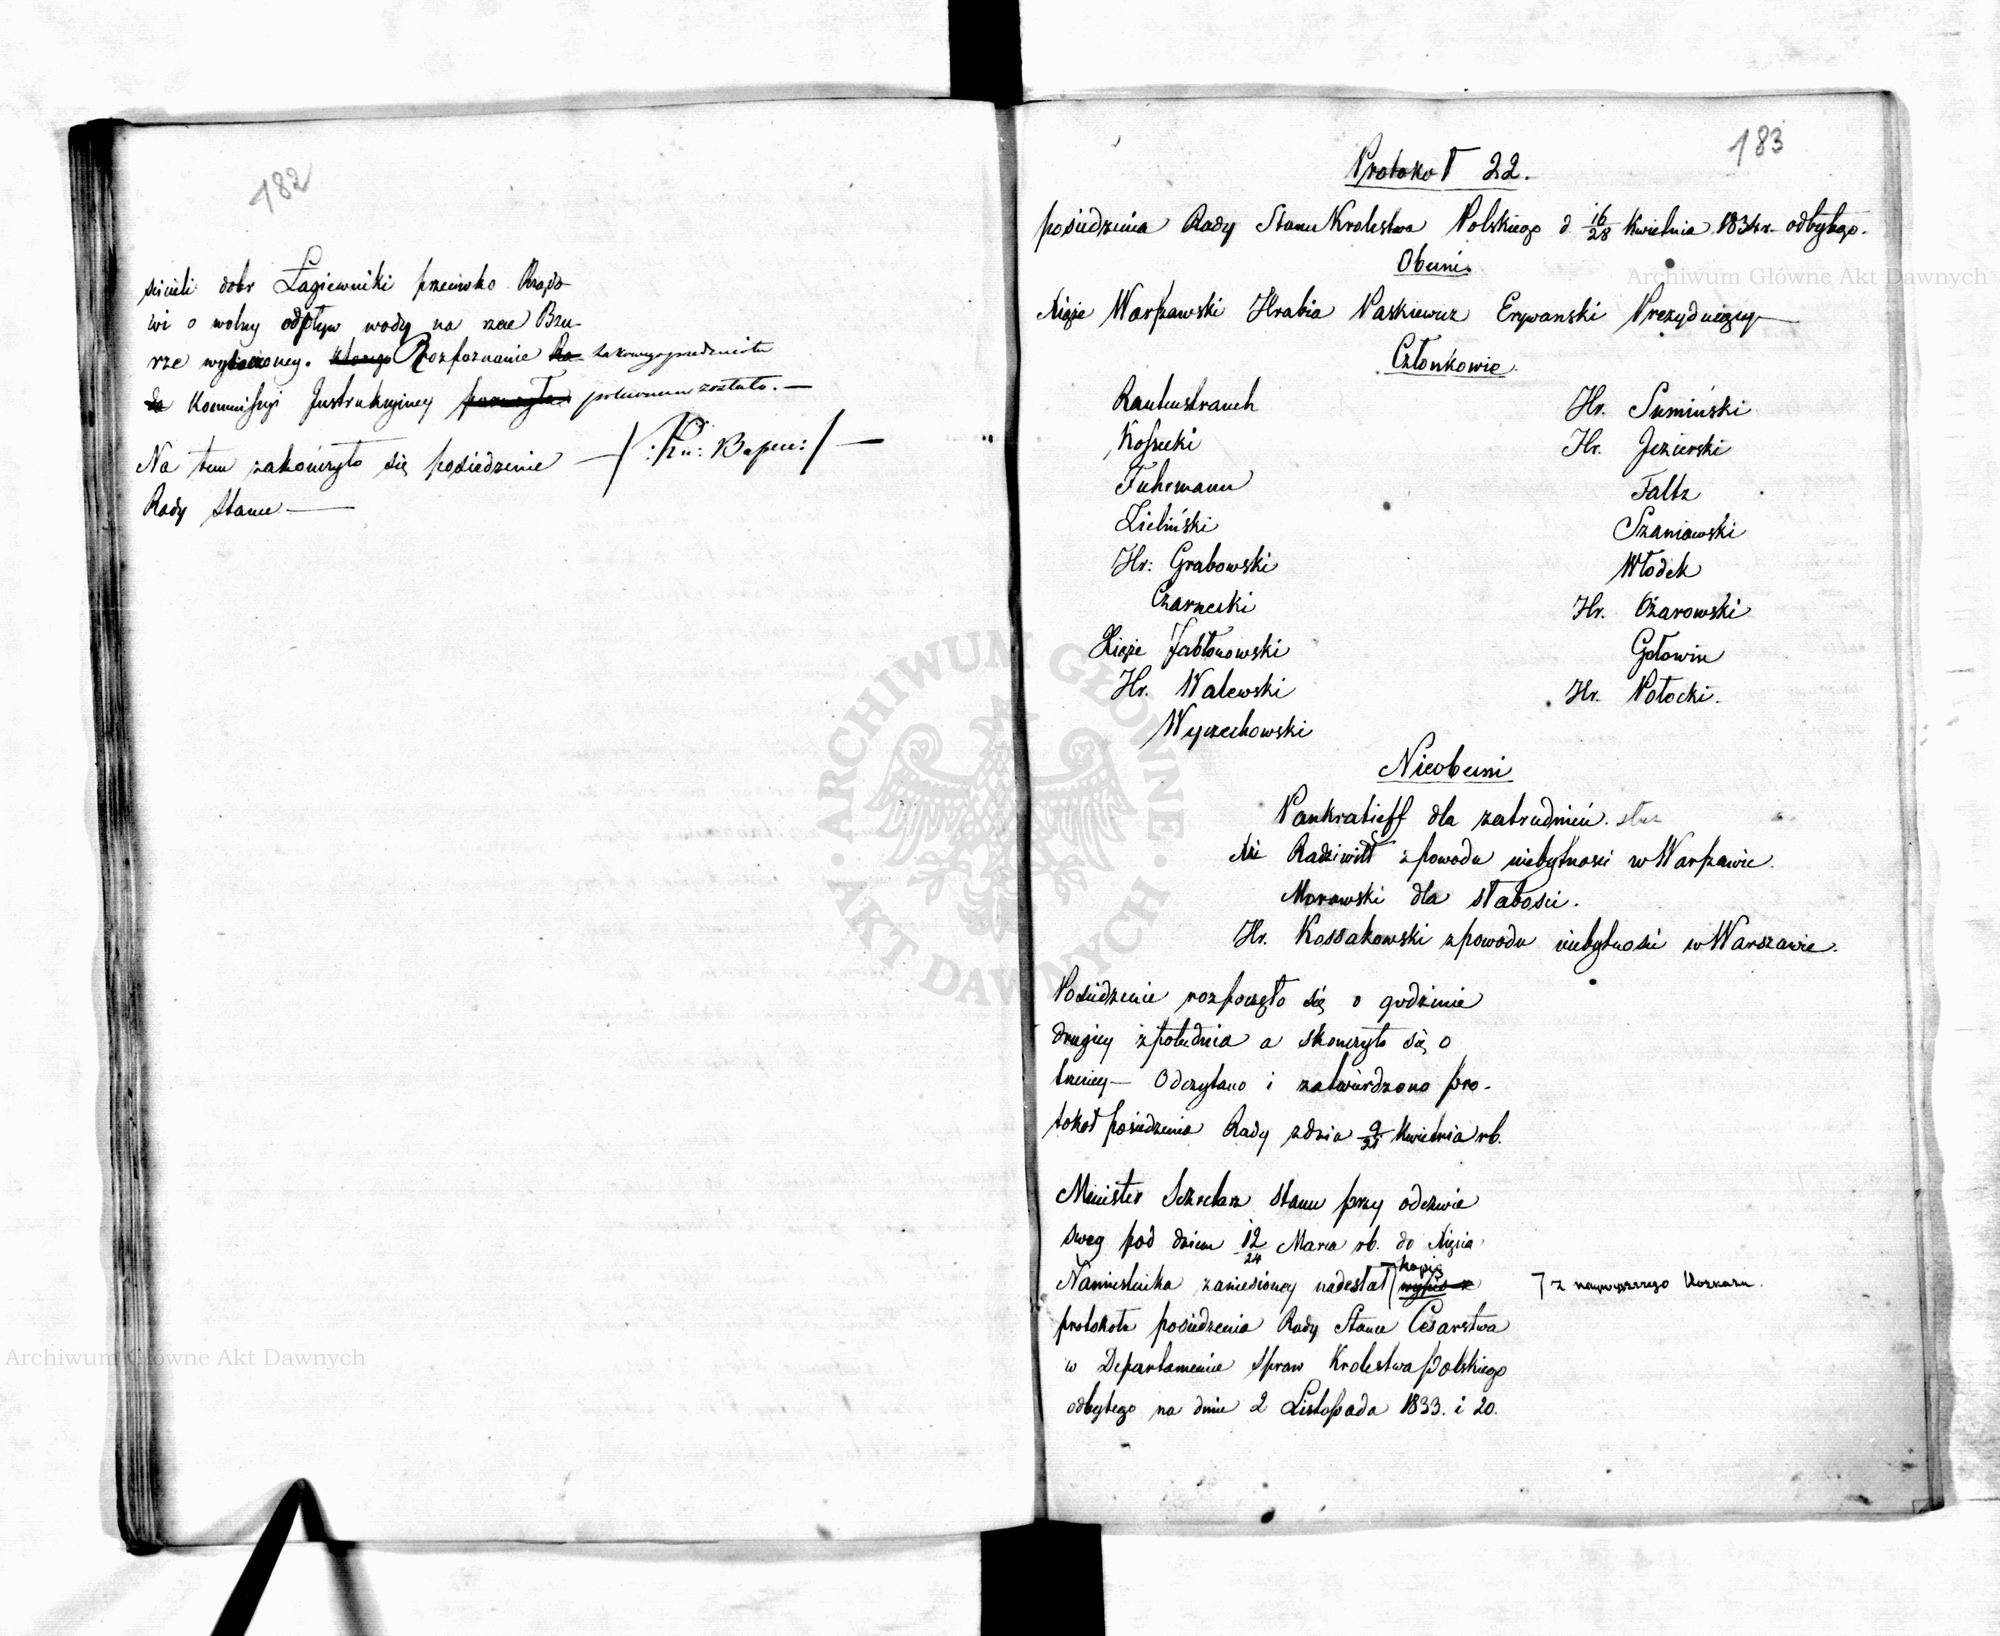 182
ścicieli dobr Łagiewniki przeciwko Rządo
wi o wolny odpływ wody na rzece Bzu-
rze wytoczoney. ktorego Rozpoznanie Ra- takowego przedmiotu
da Kommissyi Instrukcyiney poruczyła poleconem zostało. —
Na tem zakończyło się posiedzenie
Rady Stanu —
183
Protokoł 22.
posiedzenia Rady Stanu Krolestwa Polskiego d 16/28 Kwietnia 1834 r. odbytego.
Obecni.
Xiąże Warszawski Hrabia Paskiewicz Erywanski Prezyduiący —
Członkowie
Rautenstrauch
Kossecki
Fuhrmann
Zieliński
Hr: Grabowski
Czarnecki
Xiąże Jabłonowski
Hr. Walewski
Wyczechowski
Hr. Sumiński
Hr. Jezierski
Faltz
Szaniawski
Włodek
Hr. Ożarowski
Gołowin
Hr. Potocki.
Nieobecni
Pankratieff dla zatrudnień. służ
Xże Radziwiłł z powodu niebytności w Warszawie.
Morawski dla słabości.
Hr. Kossakowski z powodu niebytności w Warszawie.
Posiedzenie rozpoczęło się o godzinie
drugiey z południa a skonczyło się o
trzeciey — Odczytano i zatwierdzono pro-
tokoł posiedzenia Rady z dnia 9/21 Kwietnia rb.
Minister Sekretarz Stanu przy odezwie
swey pod dniem 12/24 Marca rb. do Xięcia
kopię
Namiestnika zaniesioney nadesłał wypis z ⁊ z naywyższego Rozkazu.
protokołu posiedzenia Rady Stanu Cesarstwa
w Departamencie Spraw Krolestwa Polskiego
odbytego na dniu 2 Listopada 1833. i 20.
Archiwum Główne Akt Dawnych
Archiwum Główne Akt Dawnych
ARCHIWUM GŁÓWNE AKT DAWNYCH